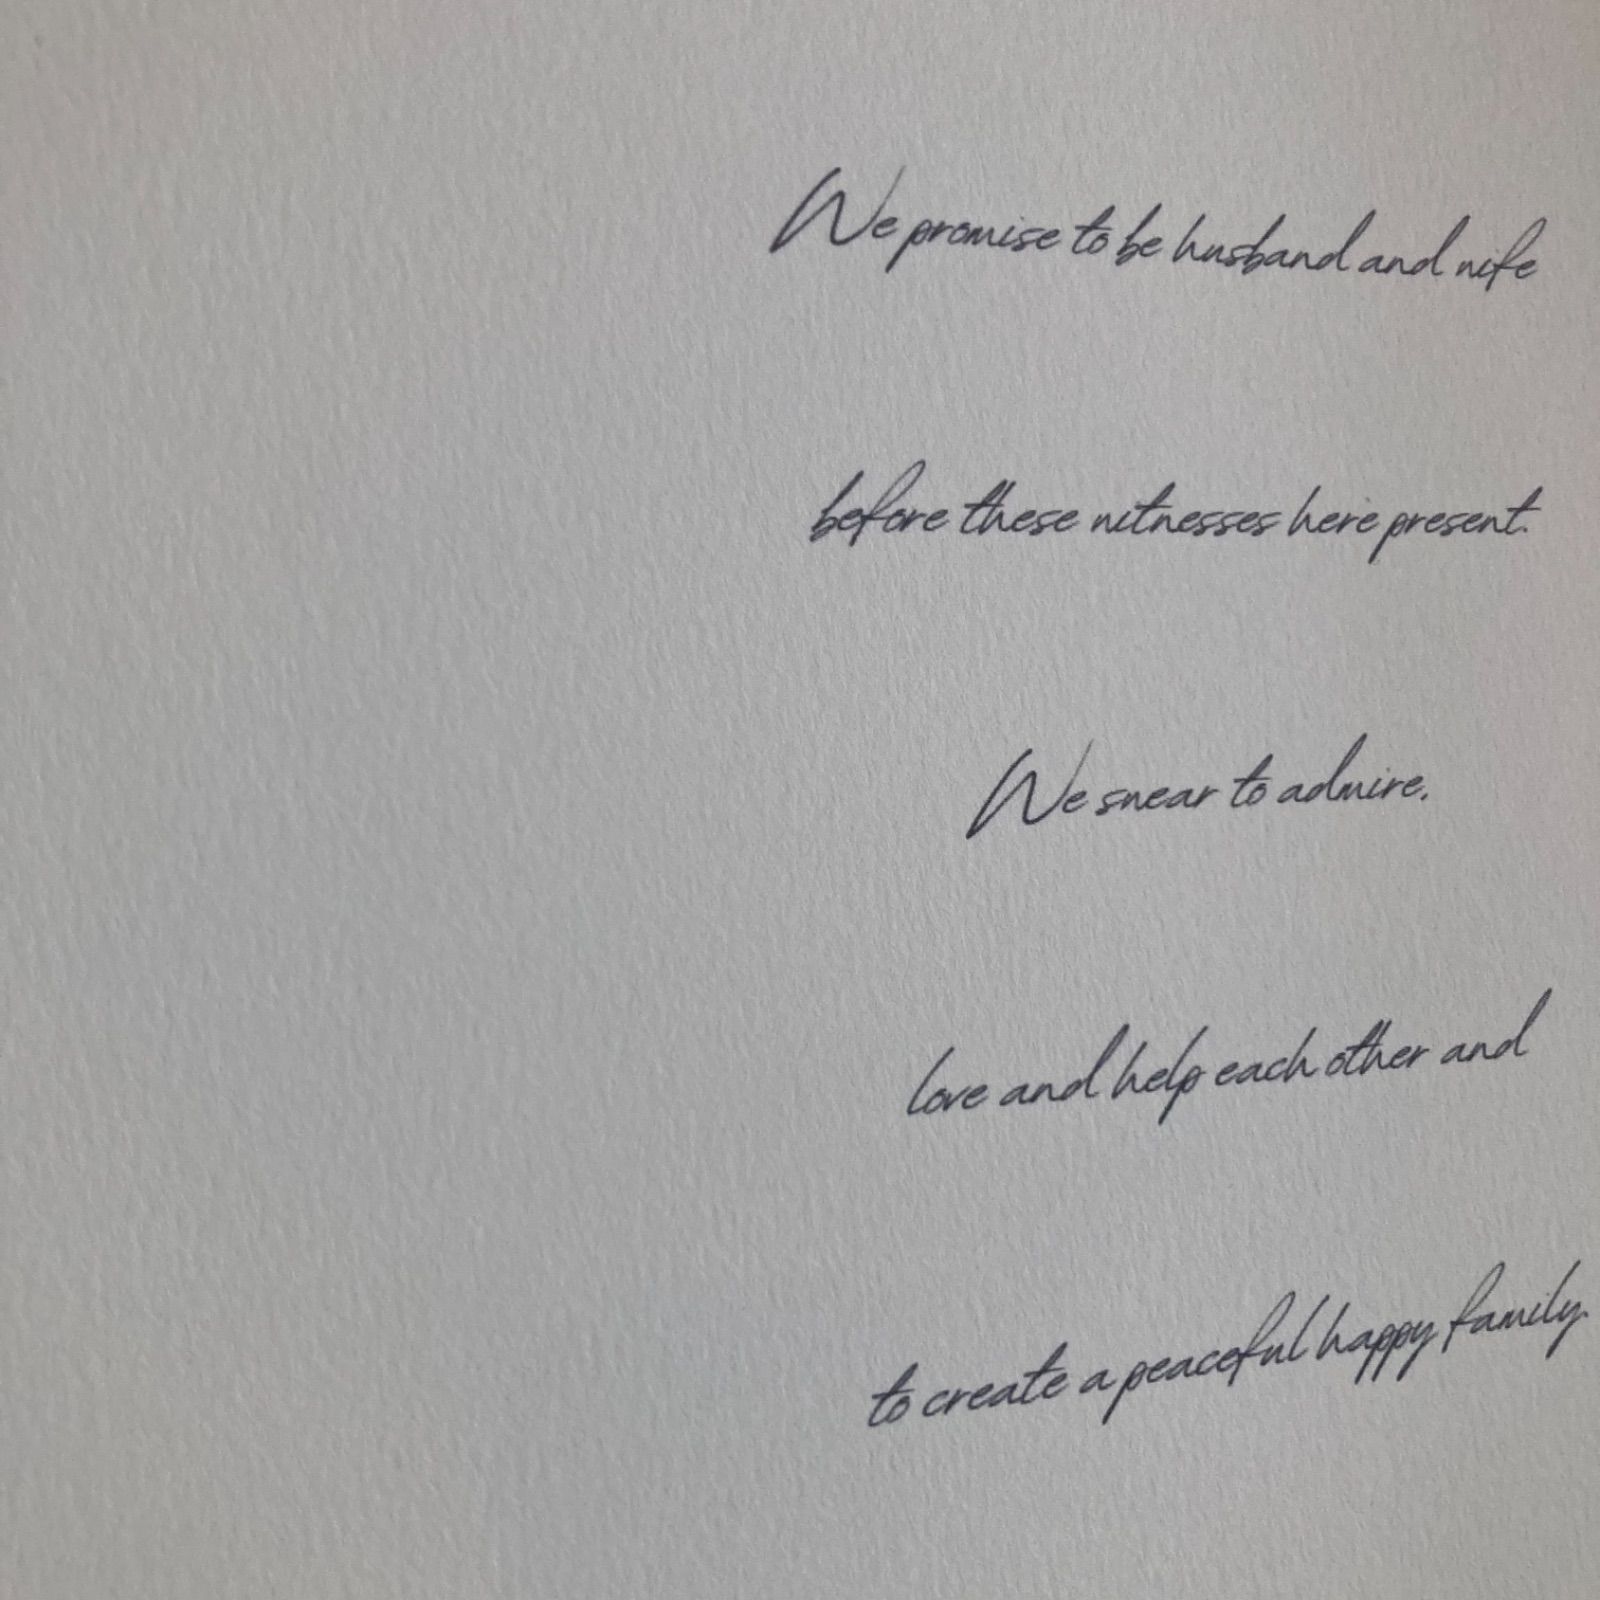 We promise to be husband and wife
before these witnesses here present.
We swear to admire,
love and help each other and
to create a peaceful happy family.